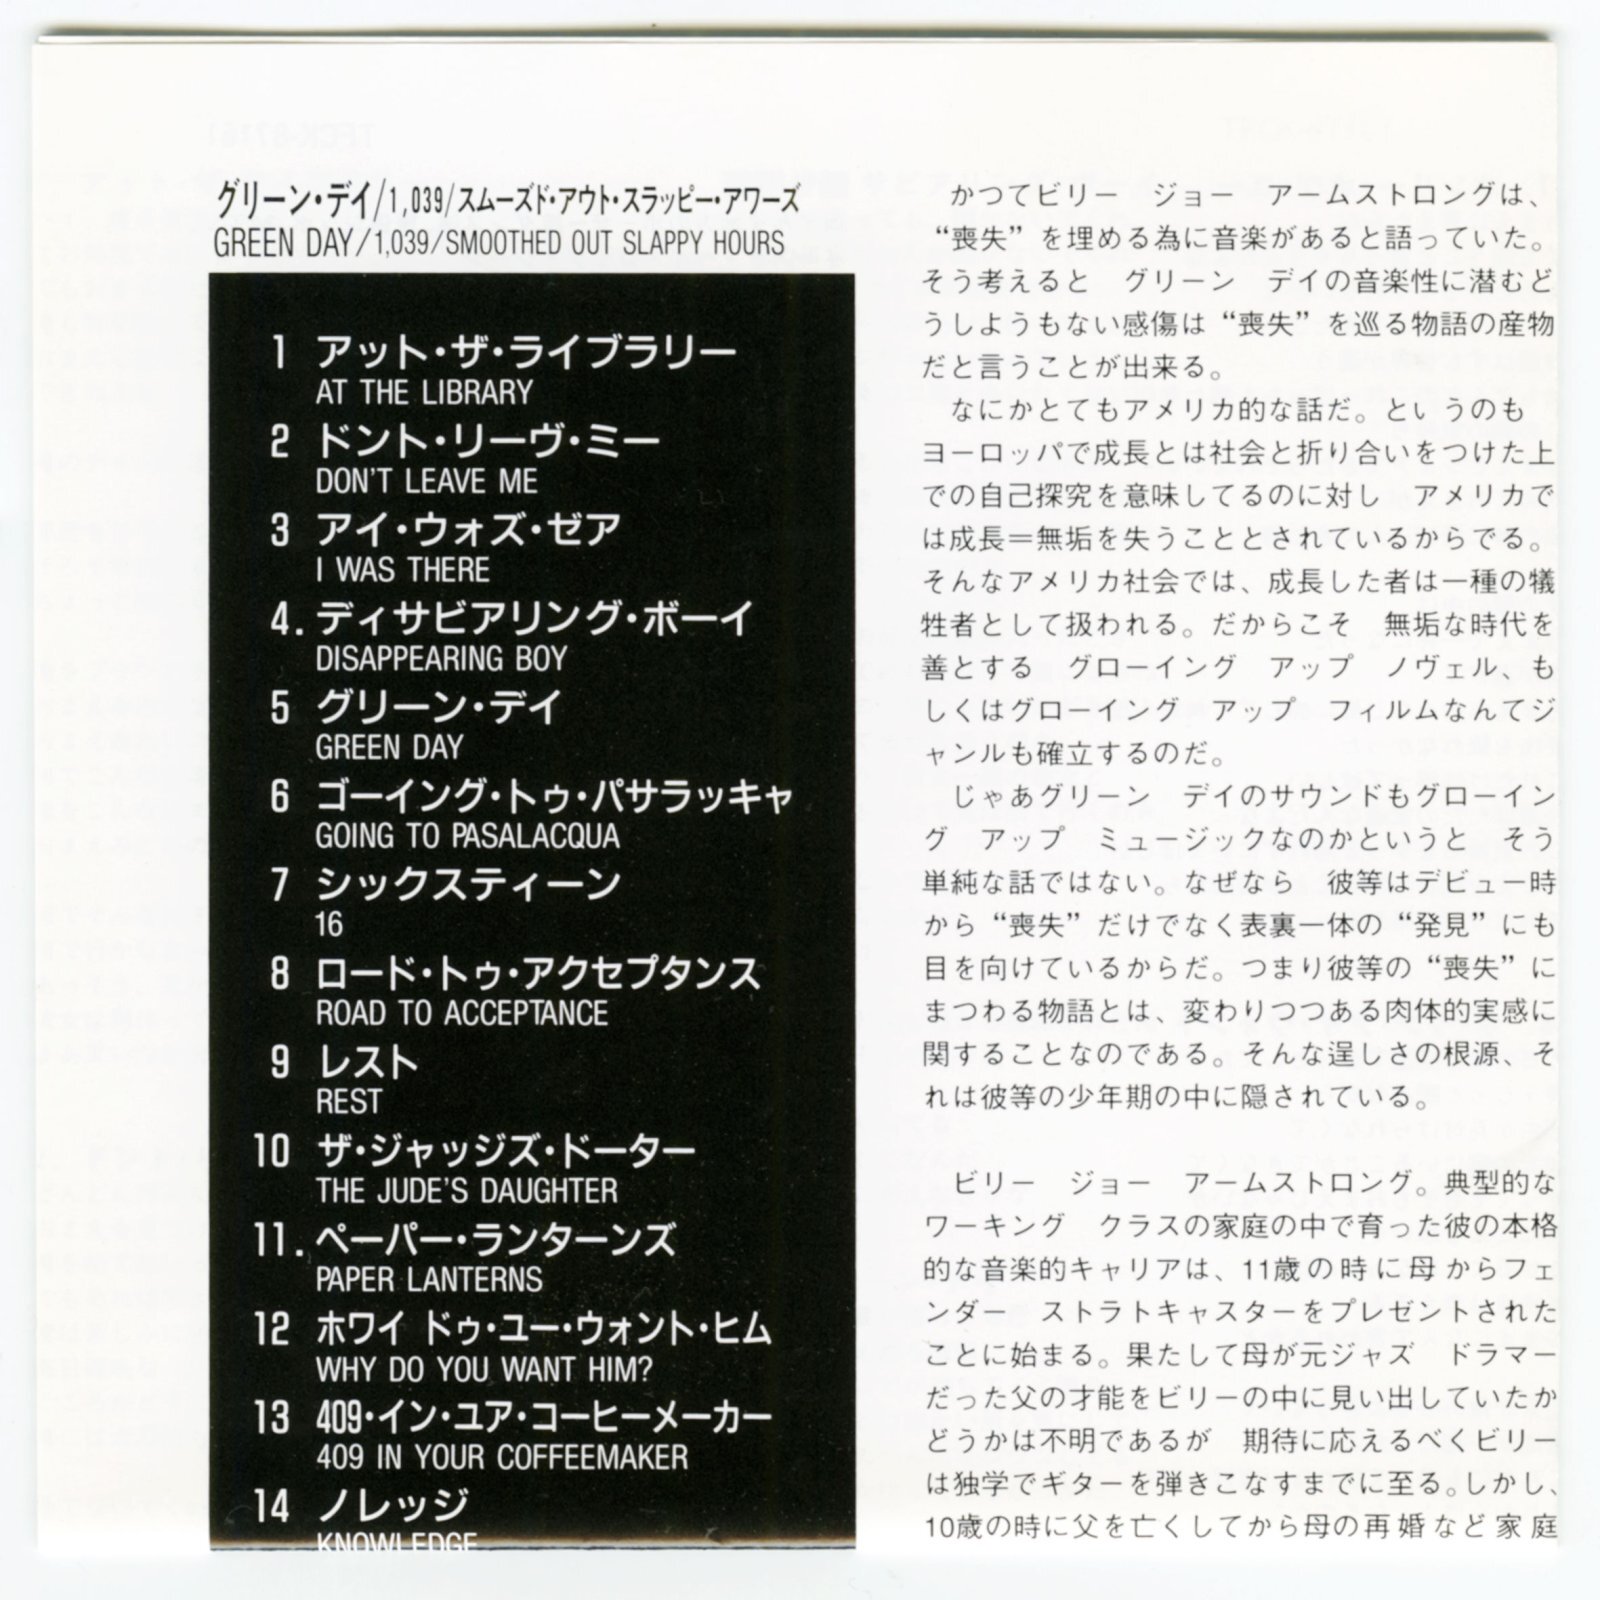 グリーン・デイ/1,039/スムーズド・アウト・スラッピー・アワーズ
GREEN DAY/1,039/SMOOTHED OUT SLAPPY HOURS
1 アット・ザ・ライブラリー
AT THE LIBRARY
2 ドント・リーヴ・ミー
DON'T LEAVE ME
3 アイ・ウォズ・ゼア
I WAS THERE
4. ディサピアリング・ボーイ
DISAPPEARING BOY
5 グリーン・デイ
GREEN DAY
6 ゴーイング・トゥ・パサラッキャ
GOING TO PASALACQUA
7 シックスティーン
16
8 ロード・トゥ・アクセプタンス
ROAD TO ACCEPTANCE
9 レスト
REST
10 ザ・ジャッジズ・ドーター
THE JUDE'S DAUGHTER
11. ペーパー・ランターンズ
PAPER LANTERNS
12 ホワイ ドゥ・ユー・ウォント・ヒム
WHY DO YOU WANT HIM?
13 409・イン・ユア・コーヒーメーカー
409 IN YOUR COFFEEMAKER
14 ノレッジ
KNOWLEDGE
かつてビリー ジョー アームストロングは、
“喪失”を埋める為に音楽があると語っていた。
そう考えると グリーン デイの音楽性に潜むど
うしようもない感傷は“喪失”を巡る物語の産物
だと言うことが出来る。
なにかとてもアメリカ的な話だ。というのも
ヨーロッパで成長とは社会と折り合いをつけた上
での自己探究を意味してるのに対し アメリカで
は成長＝無垢を失うこととされているからでる。
そんなアメリカ社会では、成長した者は一種の犠
牲者として扱われる。だからこそ 無垢な時代を
善とする グローイング アップ ノヴェル、も
しくはグローイング アップ フィルムなんてジ
ャンルも確立するのだ。
じゃあグリーン デイのサウンドもグローイン
グ アップ ミュージックなのかというと そう
単純な話ではない。なぜなら 彼等はデビュー時
から“喪失”だけでなく表裏一体の“発見”にも
目を向けているからだ。つまり彼等の“喪失”に
まつわる物語とは、変わりつつある肉体的実感に
関することなのである。そんな逞しさの根源、そ
れは彼等の少年期の中に隠されている。
ビリー ジョー アームストロング。典型的な
ワーキング クラスの家庭の中で育った彼の本格
的な音楽的キャリアは、11歳の時に母からフェ
ンダー ストラトキャスターをプレゼントされた
ことに始まる。果たして母が元ジャズ ドラマー
だった父の才能をビリーの中に見い出していたか
どうかは不明であるが 期待に応えるべくビリー
は独学でギターを弾きこなすまでに至る。しかし、
10歳の時に父を亡くしてから母の再婚など家庭